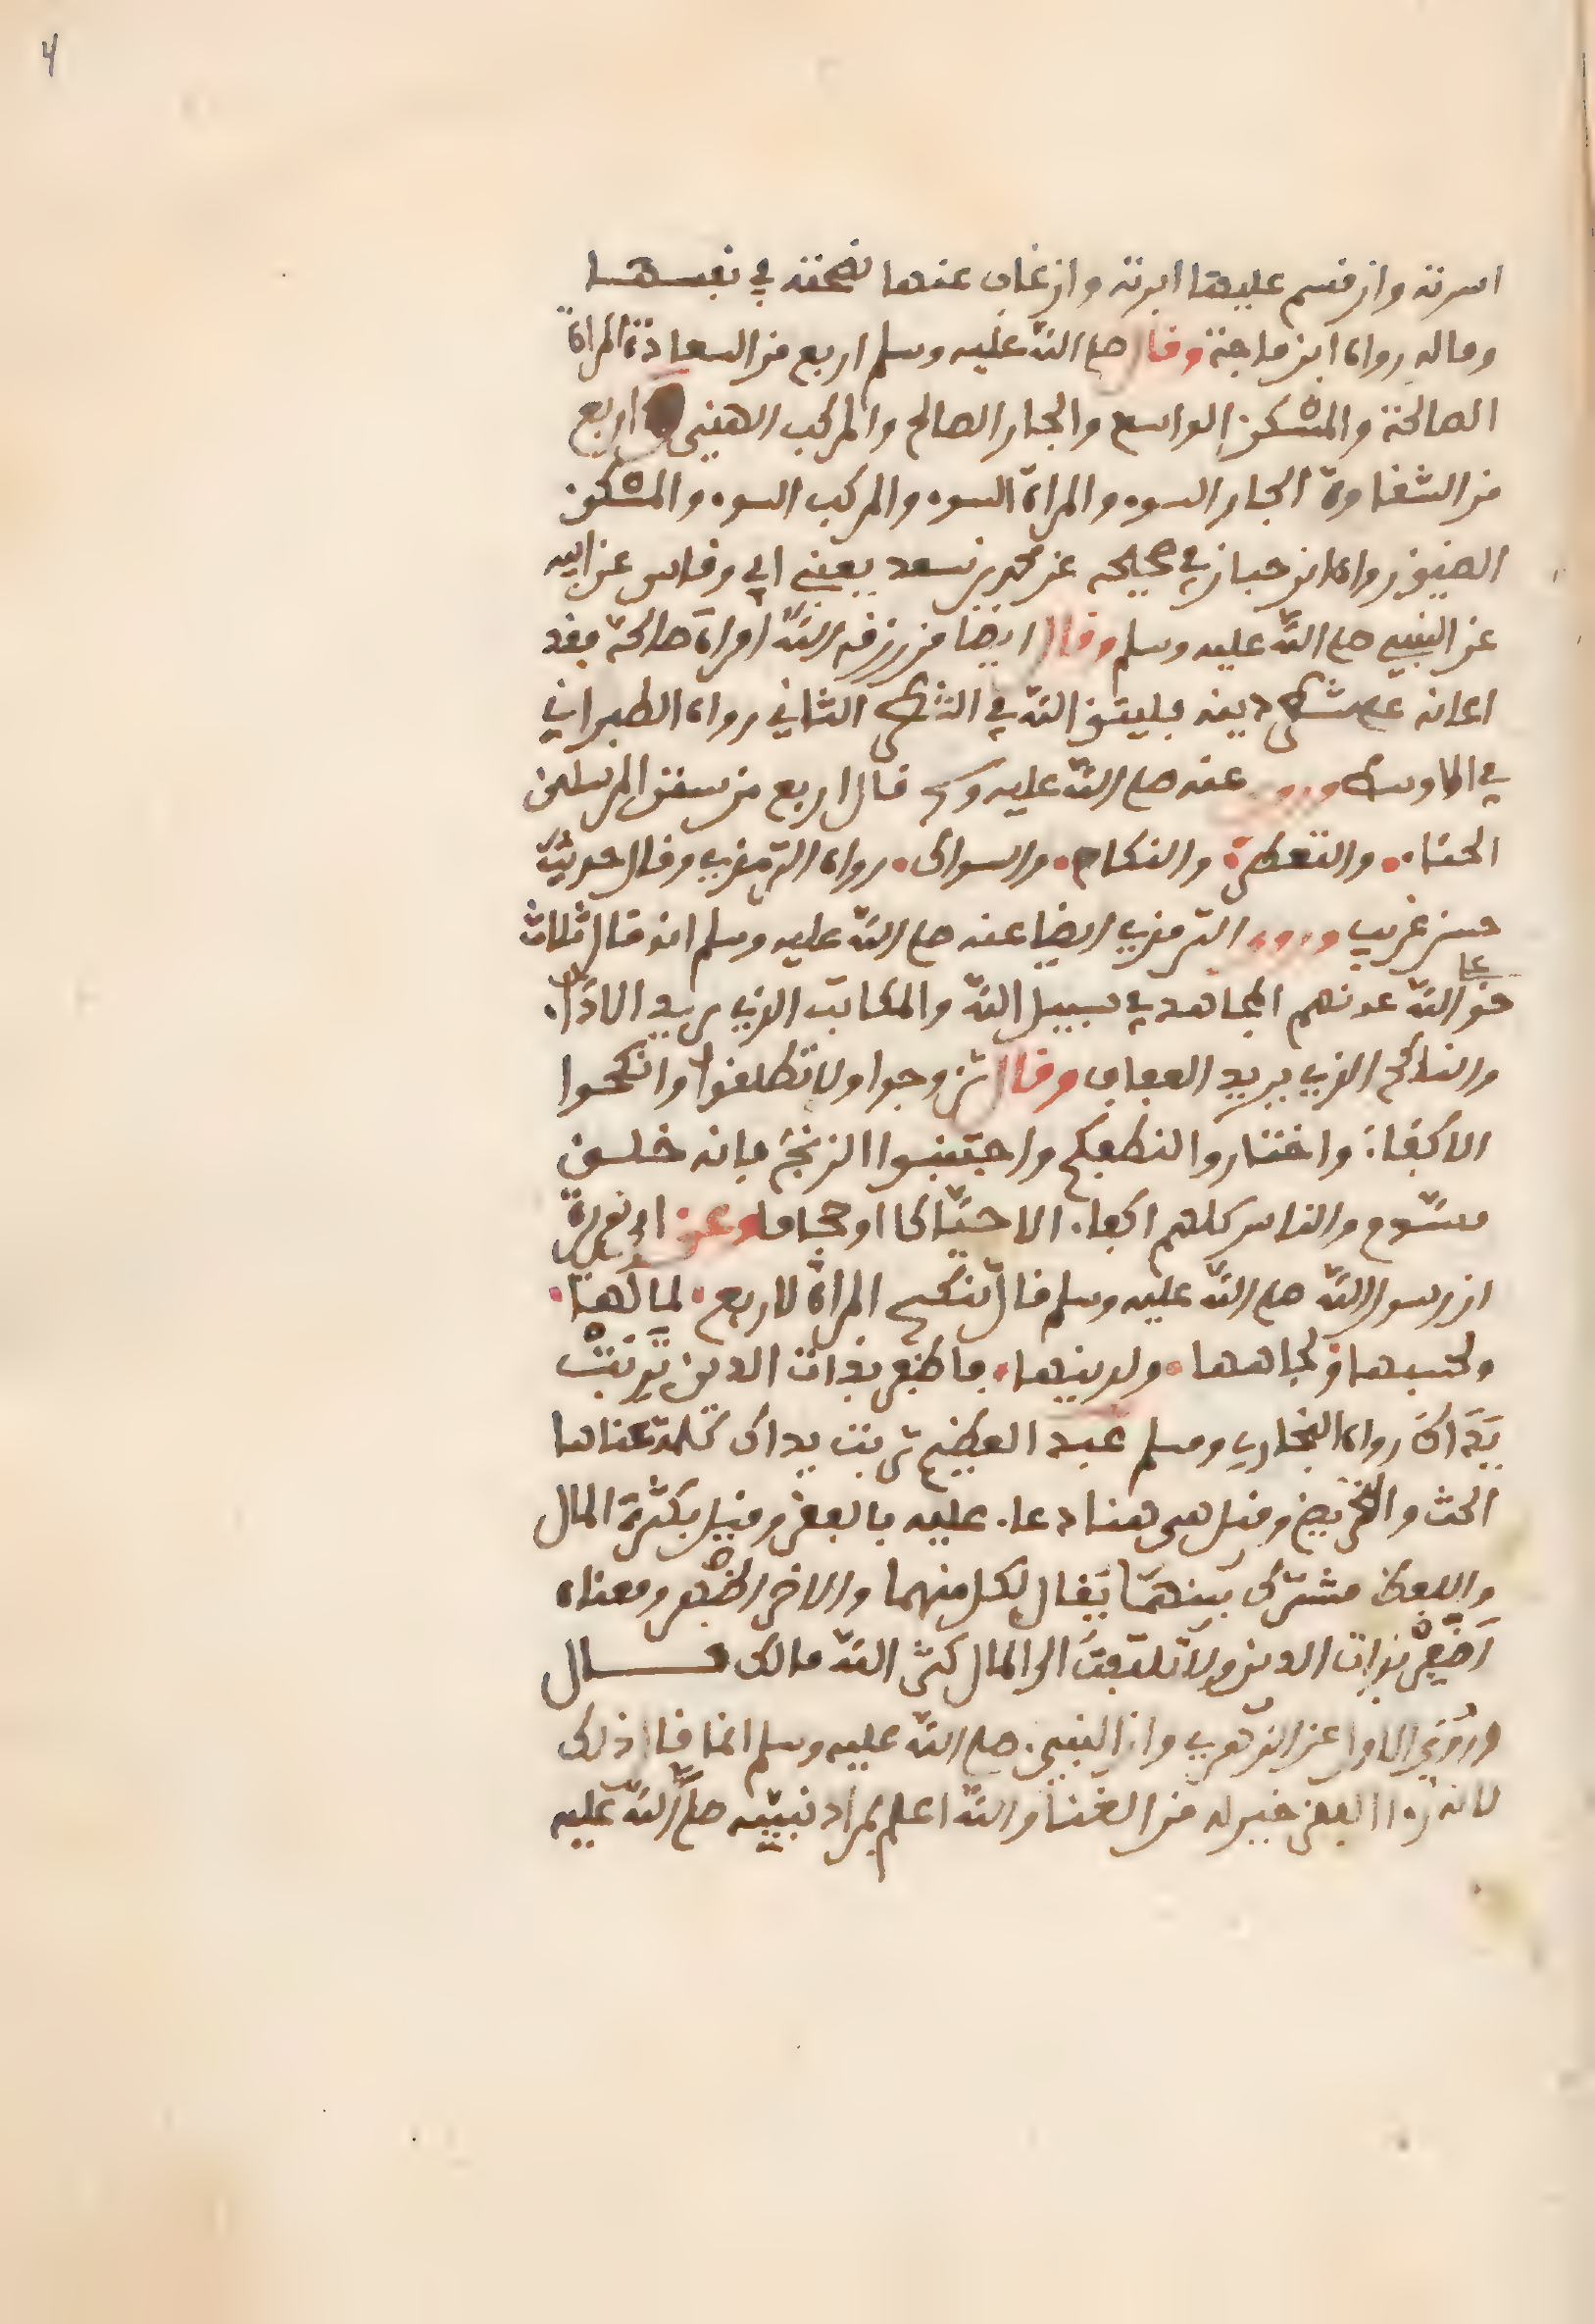 4
اسرته وان قسم عليها ابرته وان غاب عنها نصحته في نفسها
وماله رواه ابن ماجة وقال صلى الله عليه وسلم اربع من السعادة المراة
الصالحة والمسكن الواسع والجار الصالح والمركب الهني واربع
من الشقاوة الجار السوء والمراة السوء والمركب السوء والمسكن
الضيق رواه ابن حبان في صحيحه عن محمد بن سعد يعني ابي وقاص عن ابيه
عن النبي صلى الله عليه وسلم وقال ايضا من رزقه الله امراة صالحة فقد
اعانه على شطر دينه فليتق الله في الشطر الثاني رواه الطبراني
في الاوسط وروي عنه صلى الله عليه وسلم قال اربع من سنن المرسلين
الحناء والتعطر والنكاح والسواك رواه الترمذي وقال حديث
حسن غريب وروى الترمذي ايضا عنه صلى الله عليه وسلم انه قال ثلاث
حق على الله عونهم المجاهد في سبيل الله والمكاتب الذي يريد الاداء
والناكح الذي يريد العفاف وقال تزوجوا ولا تطلقوا وانكحوا
الاكفاء واختاروا لنطفكم واجتنبوا الزنج فانه خلق
مشوه والناس كلهم اكفاء الا حياكا او حجاما وعن ابي هريرة
ان رسول الله صلى الله عليه وسلم قال تنكح المراة لاربع لمالها
ولحسبها ولجمالها ولدينها فاظفر بذات الدين تربت
يداك رواه البخاري ومسلم عبد العظيم تربت يداك كلمة معناها
الحث والتحريض وقيل هي هنا دعاء عليه بالفقر وقيل بكثرة المال
واللفظ مشترك بينهما يقال لكل منهما والاخر اظهر ومعناه
اظفر بذات الدين ولا تلتفت الى المال كثر الله مالك قال
وروي الاول عن الزهري وان النبي صلى الله عليه وسلم انما قال ذلك
لانه را الفقر خير له من الغنا والله اعلم بمراد نبيه صلى الله عليه